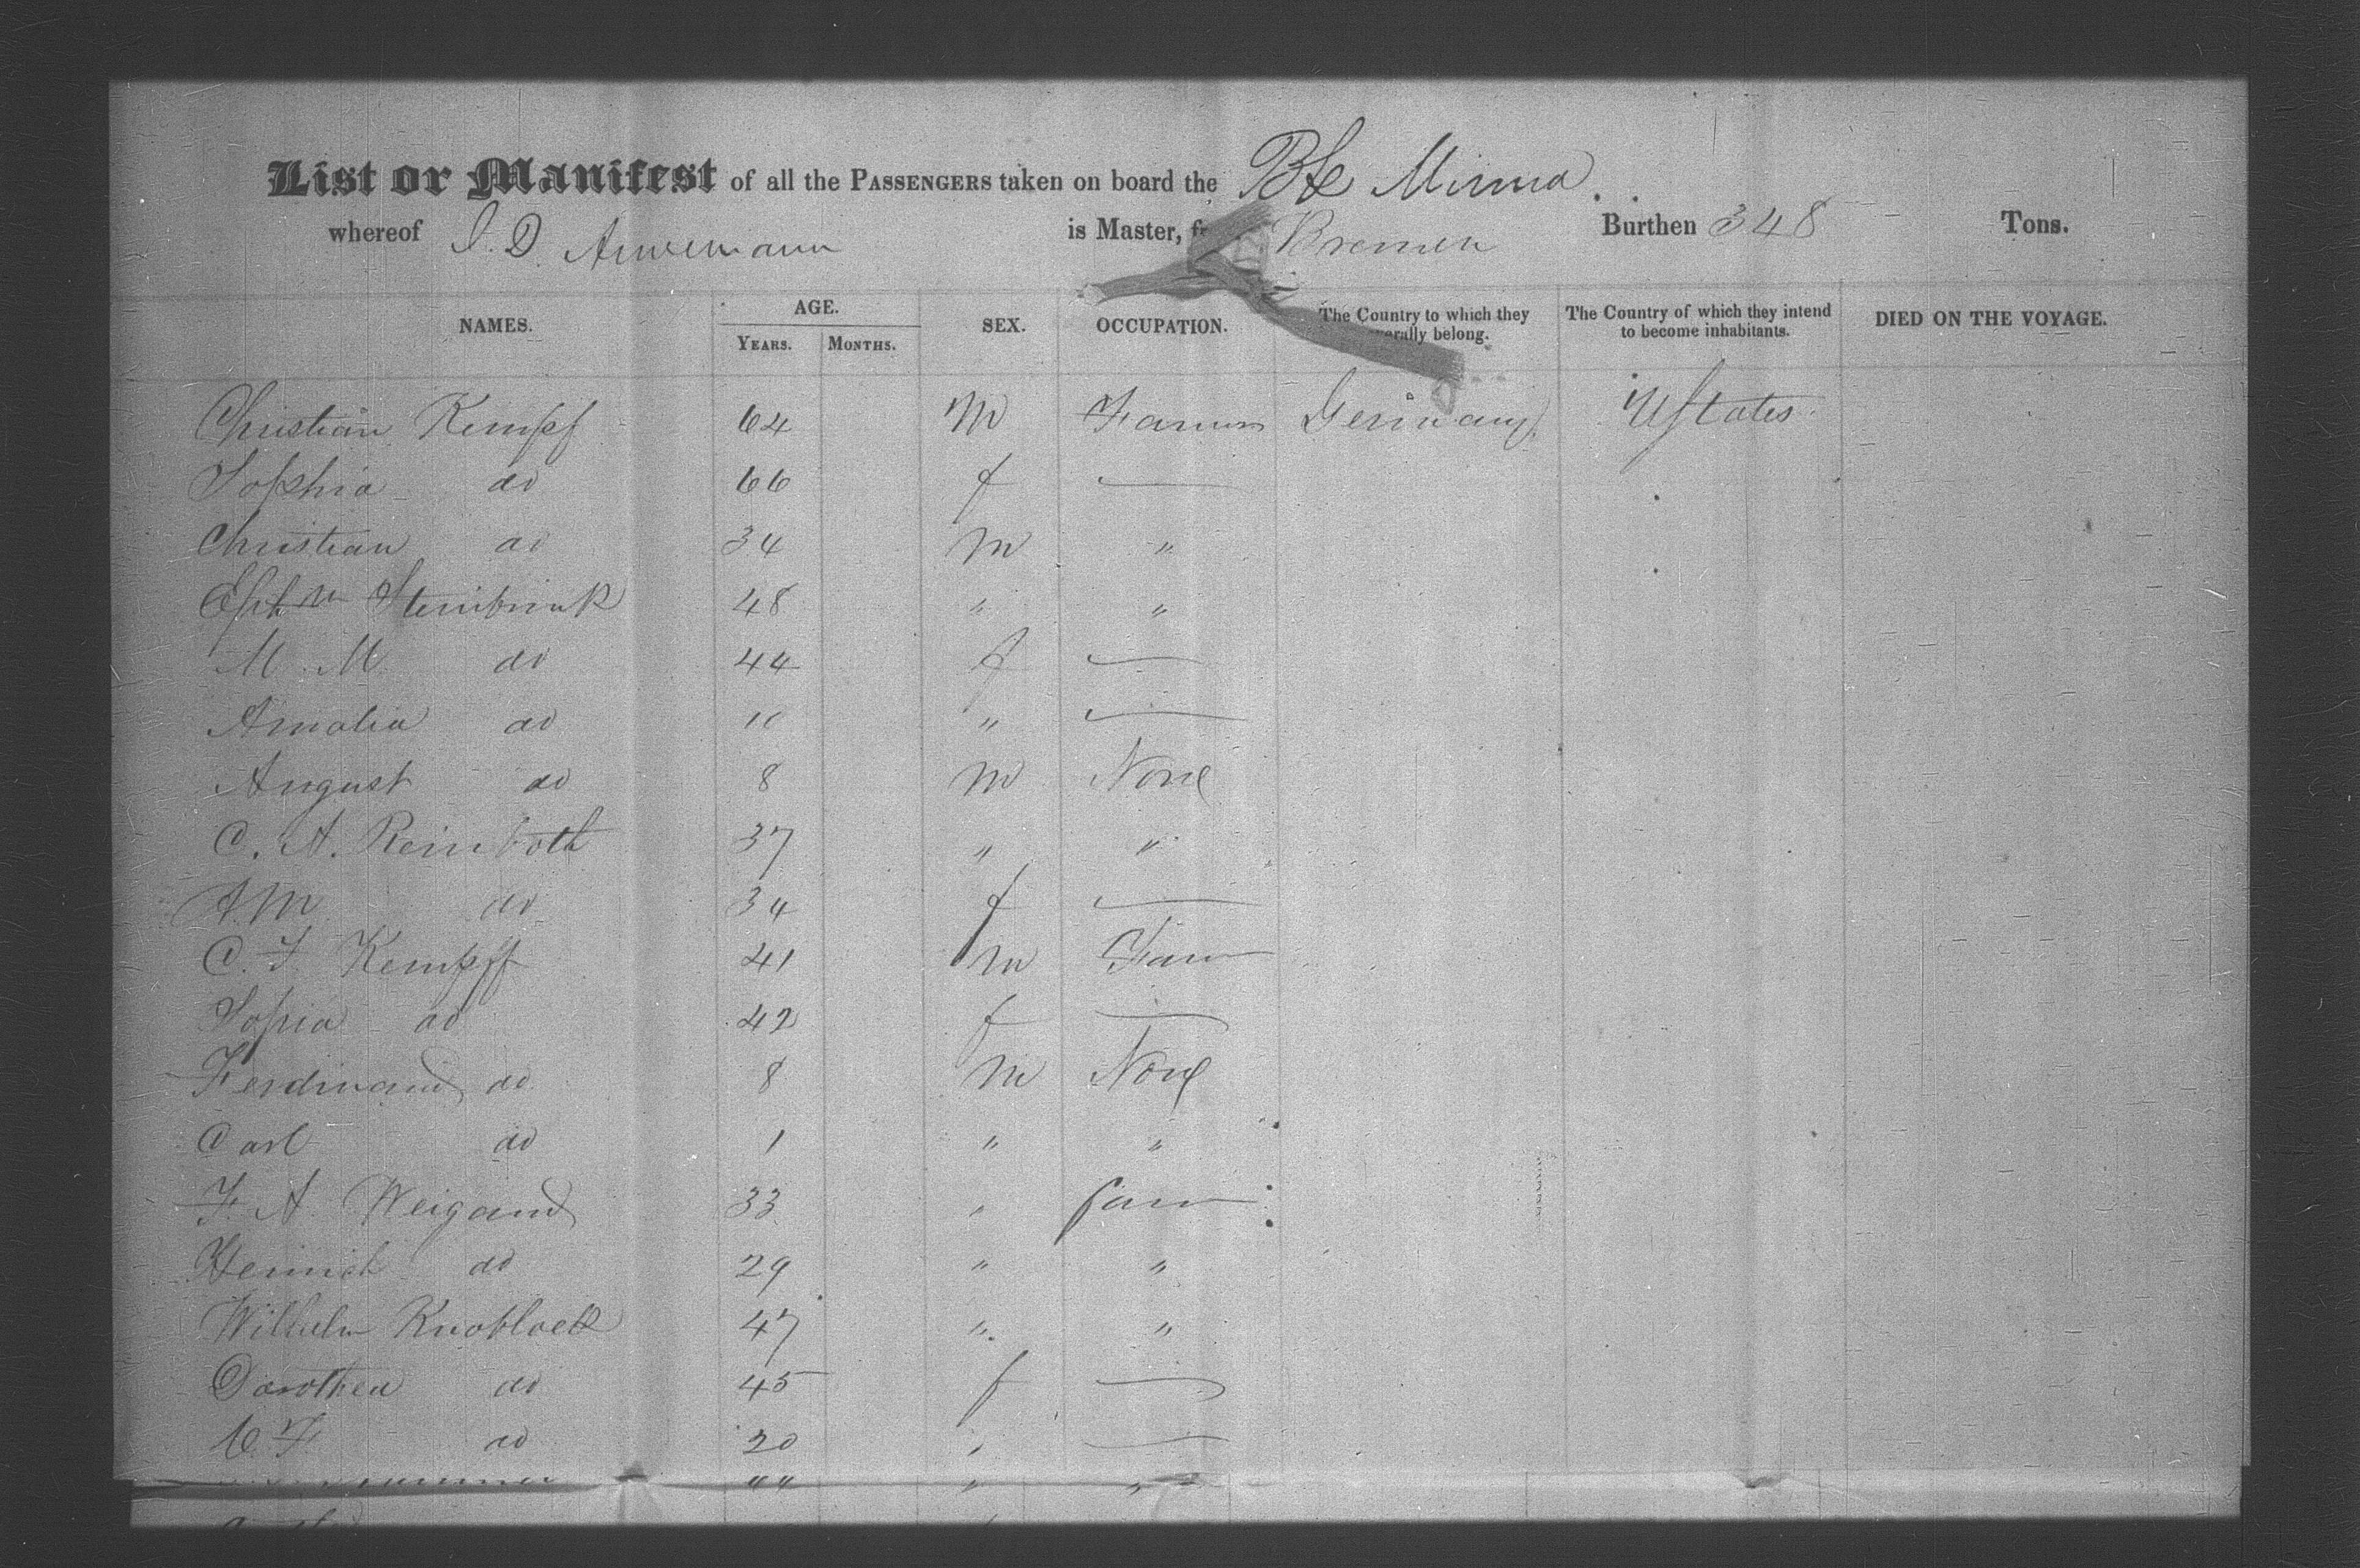 List or Manifest of all the PASSENGERS taken on board the Bk Minna
whereof J. D. is Master, Bremen Burthen 348 Tons.
NAMES. AGE. SEX. OCCUPATION. The Country to which they The Country of which they intend DIED ON THE VOYAGE.
YEARS. MONTHS. belong. to become inhabitants.
Christian Kempf 64 M Farmer Germany UStates
Sophia do 66 f —
Christian do 34 m "
Steinbrink 48 " "
M. M. do 44 f —
Amalia do 10 " —
August do 8 m None
C. A. Reinboth 37 " "
A M do 34 f —
C. F. Kempff 41 m Farm
Sophia do 42 f —
Ferdinand do 8 m None
Carl do 1 " "
F. A. Weigand 33 " farm
Heinrich do 29 " "
Wilhelm Knoblock 47 " "
Dorothea do 45 f —
C. F do 20 " —